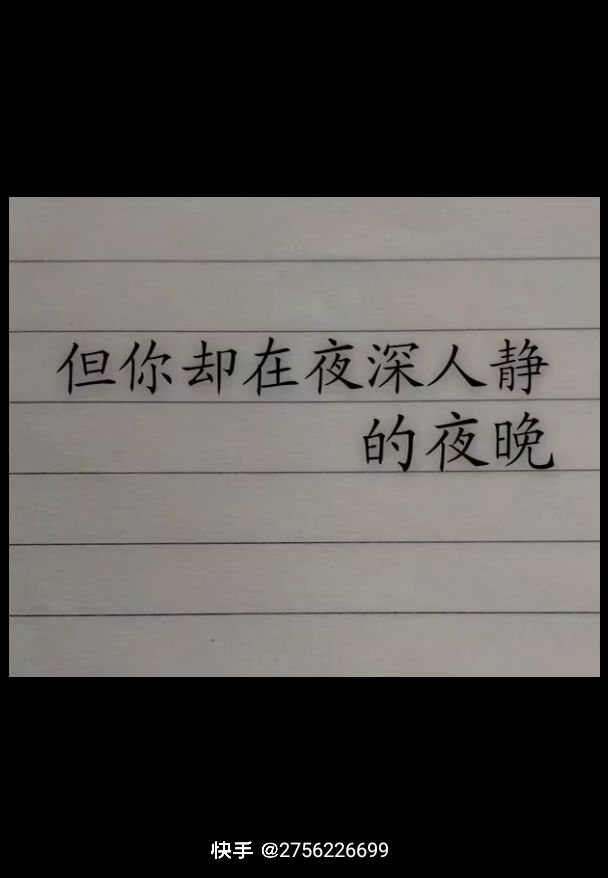 但你却在夜深人静
的夜晚
快手 @2756226699